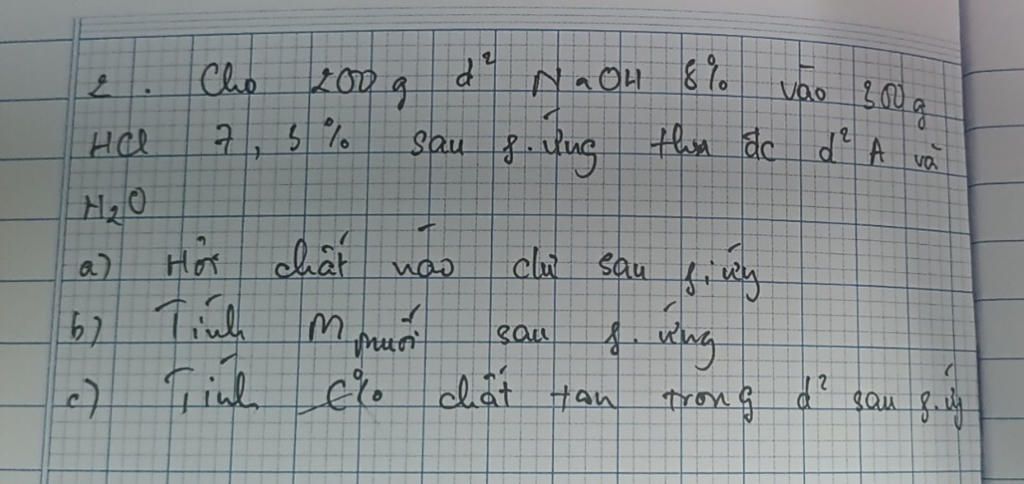 2. Cho 200g d² NaOH 8% vào 300g
HCl 7,3% sau p.ứng thu đc d² A và
H₂O
a) Hỏi chất nào dư sau p.ứng
b) Tính m muối sau p.ứng
c) Tính C% chất tan trong d² sau p.ứ